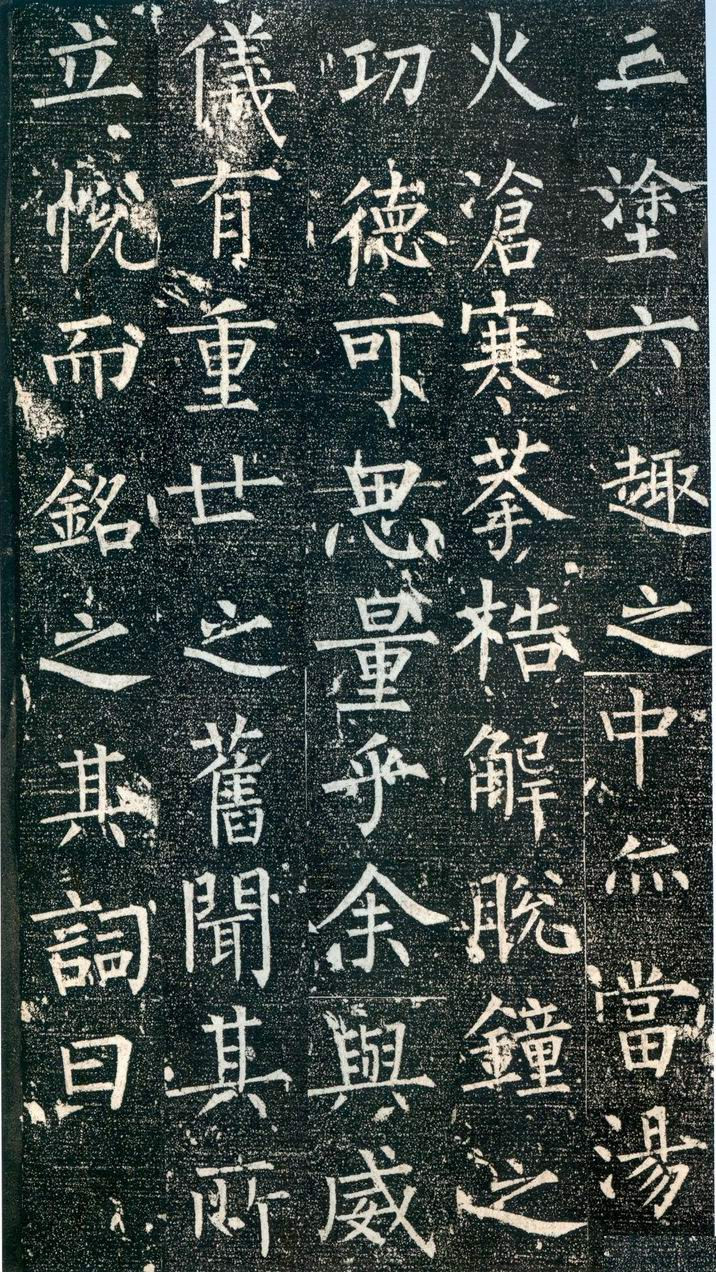 三塗六趣之中亦當湯
火滄寒荼梏解脫鐘之
功德可思量乎余與威
儀有重世之舊聞其所
立悅而銘之其詞曰